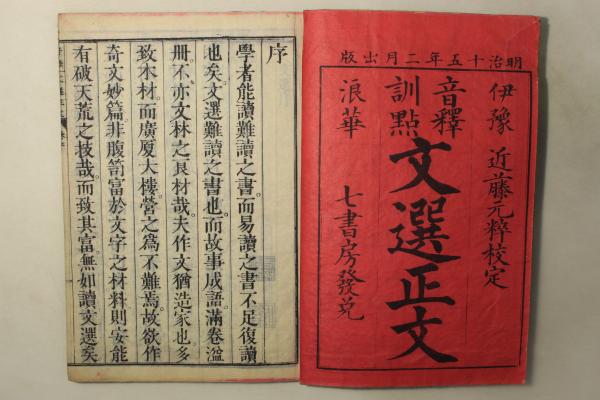 明治十五年二月出版
伊豫 近藤元粹校定
音釋
訓點
文選正文
浪華 七書房發兌
序
學者能讀難讀之書而易讀之書不足復讀
也矣文選難讀之書也而故事成語滿卷溢
冊不亦文林之良材哉夫作文猶造家也多
致木材而廣厦大樓營之爲不難焉故欲作
奇文妙篇非腹笥富於文字之材料則安能
有破天荒之技哉而致其富無如讀文選矣